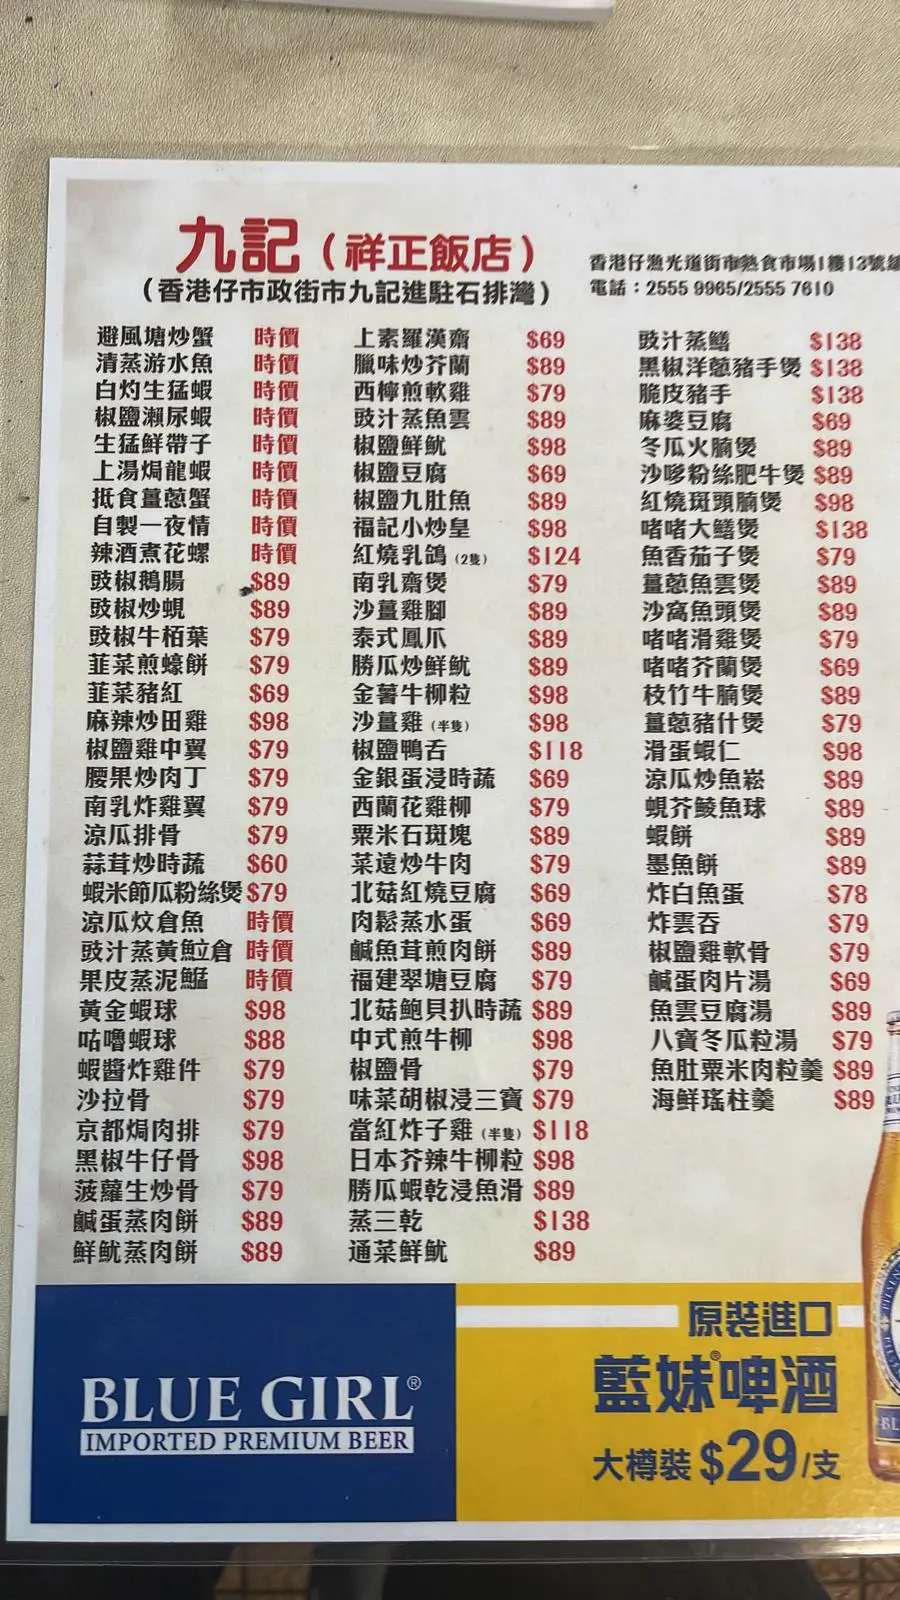 九記（祥正飯店）
（香港仔市政街市九記進駐石排灣）
香港仔漁光道街市熟食市場1樓13號
電話：2555 9965/2555 7610
避風塘炒蟹 時價
清蒸游水魚 時價
白灼生猛蝦 時價
椒鹽瀨尿蝦 時價
生猛鮮帶子 時價
上湯焗龍蝦 時價
抵食薑蔥蟹 時價
自製一夜情 時價
辣酒煮花螺 時價
豉椒鵝腸 $89
豉椒炒蜆 $89
豉椒牛栢葉 $79
韮菜煎蠔餅 $79
韮菜豬紅 $69
麻辣炒田雞 $98
椒鹽雞中翼 $79
腰果炒肉丁 $79
南乳炸雞翼 $79
涼瓜排骨 $79
蒜茸炒時蔬 $60
蝦米節瓜粉絲煲 $79
涼瓜炆倉魚 時價
豉汁蒸黃鮋倉 時價
果皮蒸泥鯭 時價
黃金蝦球 $98
咕嚕蝦球 $88
蝦醬炸雞件 $79
沙拉骨 $79
京都焗肉排 $79
黑椒牛仔骨 $98
菠蘿生炒骨 $79
鹹蛋蒸肉餅 $89
鮮魷蒸肉餅 $89
上素羅漢齋 $69
臘味炒芥蘭 $89
西檸煎軟雞 $79
豉汁蒸魚雲 $89
椒鹽鮮魷 $98
椒鹽豆腐 $69
椒鹽九肚魚 $89
福記小炒皇 $98
紅燒乳鴿（2隻） $124
南乳齋煲 $79
沙薑雞腳 $89
泰式鳳爪 $89
勝瓜炒鮮魷 $89
金薯牛柳粒 $98
沙薑雞（半隻） $98
椒鹽鴨舌 $118
金銀蛋浸時蔬 $69
西蘭花雞柳 $79
粟米石斑塊 $89
菜遠炒牛肉 $79
北菇紅燒豆腐 $69
肉鬆蒸水蛋 $69
鹹魚茸煎肉餅 $89
福建翠塘豆腐 $79
北菇鮑貝扒時蔬 $89
中式煎牛柳 $98
椒鹽骨 $79
味菜胡椒浸三寶 $79
當紅炸子雞（半隻） $118
日本芥辣牛柳粒 $98
勝瓜蝦乾浸魚滑 $89
蒸三乾 $138
通菜鮮魷 $89
豉汁蒸鱔 $138
黑椒洋蔥豬手煲 $138
脆皮豬手 $138
麻婆豆腐 $69
冬瓜火腩煲 $89
沙嗲粉絲肥牛煲 $89
紅燒斑頭腩煲 $98
啫啫大鱔煲 $138
魚香茄子煲 $79
薑蔥魚雲煲 $89
沙窩魚頭煲 $89
啫啫滑雞煲 $79
啫啫芥蘭煲 $69
枝竹牛腩煲 $89
薑蔥豬什煲 $79
滑蛋蝦仁 $98
涼瓜炒魚崧 $89
蜆芥鯪魚球 $89
蝦餅 $89
墨魚餅 $89
炸白魚蛋 $78
炸雲吞 $79
椒鹽雞軟骨 $79
鹹蛋肉片湯 $69
魚雲豆腐湯 $89
八寶冬瓜粒湯 $79
魚肚粟米肉粒羹 $89
海鮮瑤柱羹 $89
BLUE GIRL®
IMPORTED PREMIUM BEER
原裝進口
藍妹®啤酒
大樽裝 $29/支